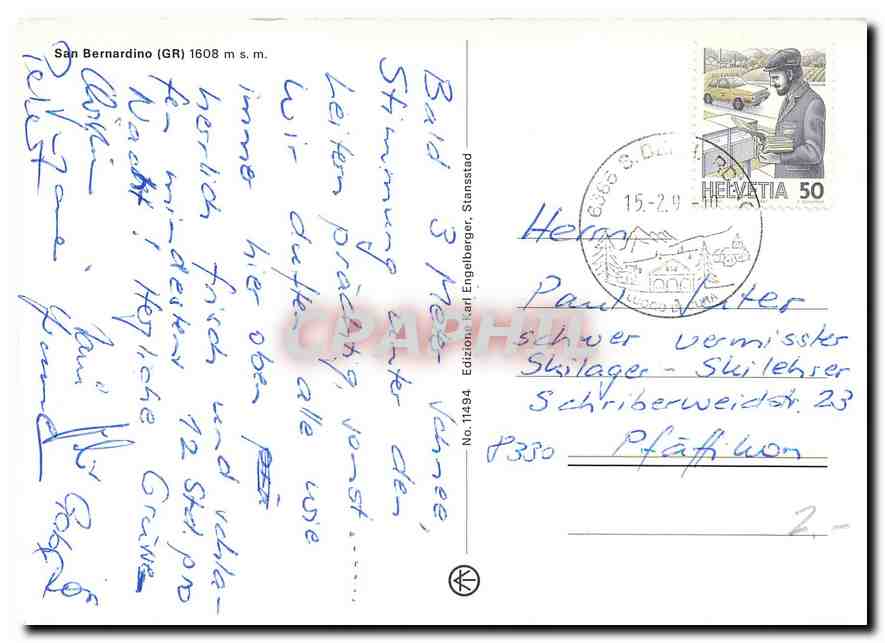 San Bernardino (GR) 1608 m s. m.
Bald 3 Meter Schnee,
Stimmung unter den
Leitern prächtig, sonst......
Wir duften alle wie
immer hier oben
herrlich frisch und schla-
fen mindestens 12 Std. pro
Nacht! Herzliche Grüsse
No. 11494 Edizione Karl Engelberger, Stansstad
HELVETIA 50
15.-2.9 -10
LUOGO DI CURA
Herrn
Paul Suter
schwer vermisster
Skilager - Skilehrer
Schriberweidstr. 23
8330 Pfäffikon
2.-
CPAPHIL